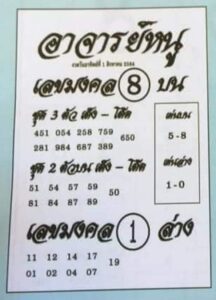 อาจารย์หนู
งวดวันอาทิตย์ที่ 1 สิงหาคม 2564
เลขมงคล 8 บน
ชุด 3 ตัว เต็ง - โต๊ด
451 054 258 759 650
281 984 687 389
เด่นบน
5-8
ชุด 2 ตัวบน เต็ง - โต๊ด
51 54 57 59 50
81 84 87 89
เด่นล่าง
1-0
เลขมงคล 1 ล่าง
11 12 14 17 19
01 02 04 07